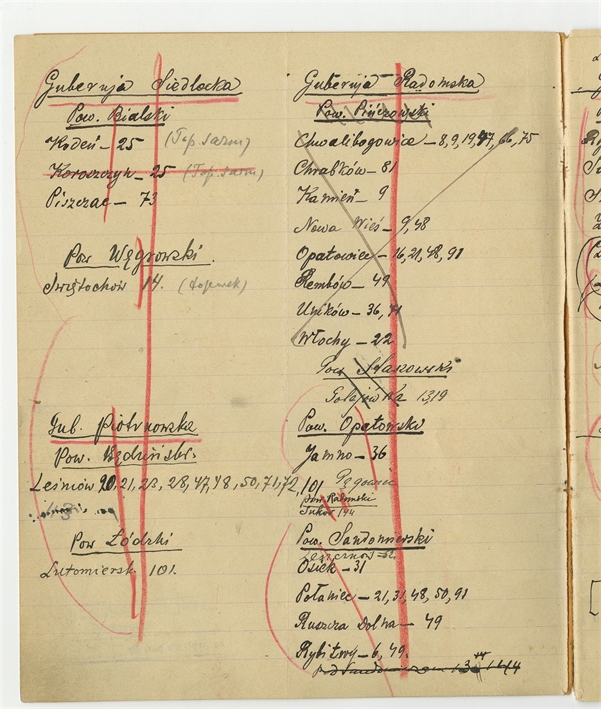 Gubernja Siedlecka
Pow. Bialski
Kodeń - 25 (Top. sarm)
Koroszczyn - 25 (Top. sarm)
Piszczac - 73
Pow Węgrowski.
Świętochów 14.
Gub. Piotrkowska
Pow. Będziński.
Leśniów 20, 21, 23, 28, 47, 48, 50, 71, 72, 101
Pow Łódzki
Lutomiersk 101.
Gubernja Radomska
Pow. Pińczowski
Chwalibogowice - 8, 9, 19, 47, 66, 75
Chrabków - 81
Kamień - 9
Nowa Wieś - 9, 48
Opatowiec - 16, 21, 48, 91
Rembów - 49
Uników - 36, 71
Włochy - 22
Pow Staszowski
1319
Pow. Opatowski
Janno - 36
Pow. Sandomierski
Osiek - 31
Połaniec - 21, 31, 48, 50, 91
Ruszcza Dolna - 49
Rybitwy - 6, 49.